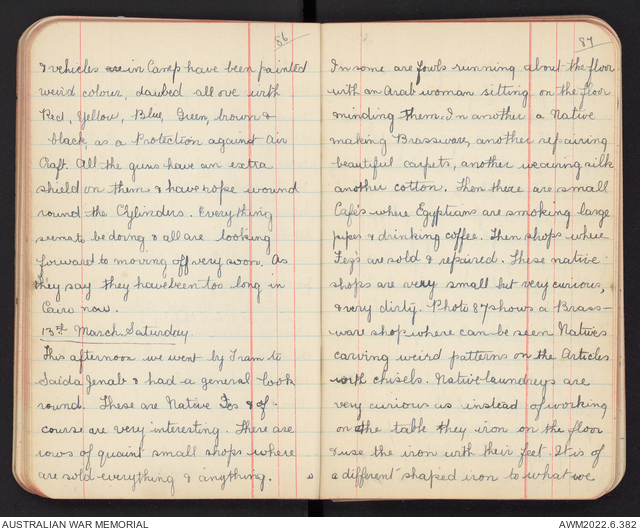 86
& vehicles are in Camp have been painted
weird colour, daubed all ove with
Red, Yellow, Blue, Green, brown &
black, as a Protection against Air
Craft. All the guns have an extra
shield on them & have rope wound
round the Cylinders. Everything
seems to be doing & all are looking
forward to moving off very soon. As
they say they have been too long in
Cairo now.
13th March. Saturday
This afternoon we went by Tram to
Saida Jenab & had a general look
round. These are Native & of
course are very interesting. There are
rows of quaint small shops where
are sold everything & anything.
87
In some are fowls running about the floor
with an Arab woman sitting on the floor
minding them. In another a Native
making Brassware, another repairing
beautiful carpets, another weaving silk
another cotton. Then there are small
Cafés where Egyptians are smoking large
pipes & drinking coffee. Then shops where
Fezs are sold & repaired. These native
shops are very small but very curious,
& very dirty. Photo 87 shows a Brass-
ware shop where can be seen Natives
carving weird patterns on the Articles
with chisels. Native laundreys are
very curious as instead of working
on the table they iron on the floor
& use the iron with their feet. It is of
a different shaped iron to what we
AUSTRALIAN WAR MEMORIAL
AWM2022.6.382